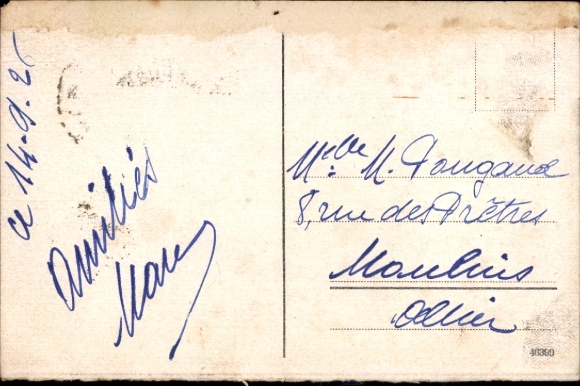 ce 14.9.25
Amitiés
Marcy
Melle M. Pougaud
8, rue des Prêtres
Moulins
Allier
46399